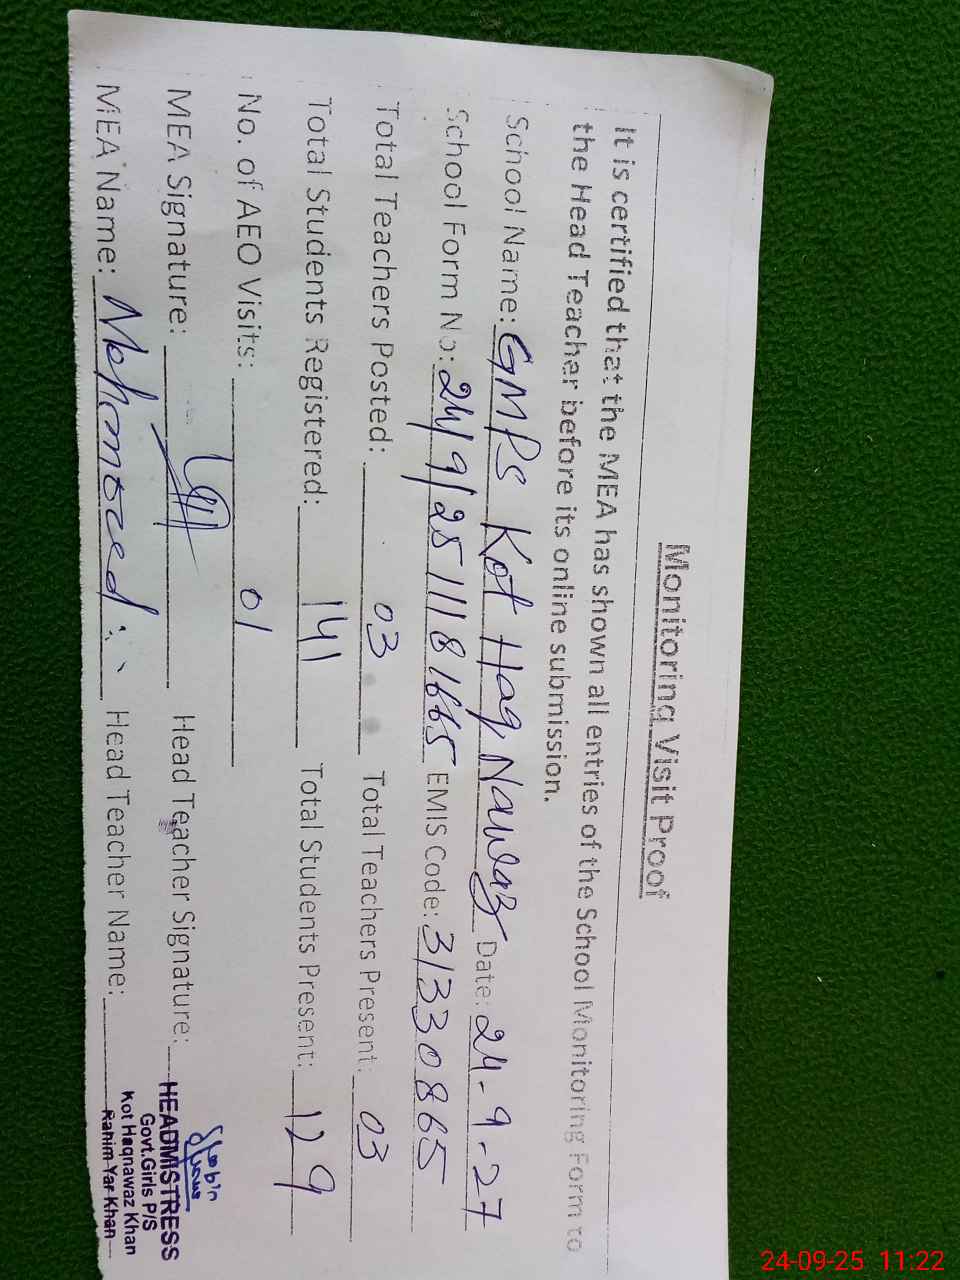 Monitoring Visit Proof
It is certified that the MEA has shown all entries of the School Monitoring Form to
the Head Teacher before its online submission.
School Name: GMPS Kot Haq Nawaz Date: 24-9-27
School Form No: 24/9/2511181665 EMIS Code: 31330865
Total Teachers Posted: 03 Total Teachers Present: 03
Total Students Registered: 141 Total Students Present: 129
No. of AEO Visits: 01
MEA Signature: Head Teacher Signature:
MEA Name: Mehmood Head Teacher Name:
HEADMISTRESS
Govt.Girls P/S
Kot Haqnawaz Khan
Rahim Yar Khan
24-09-25 11:22